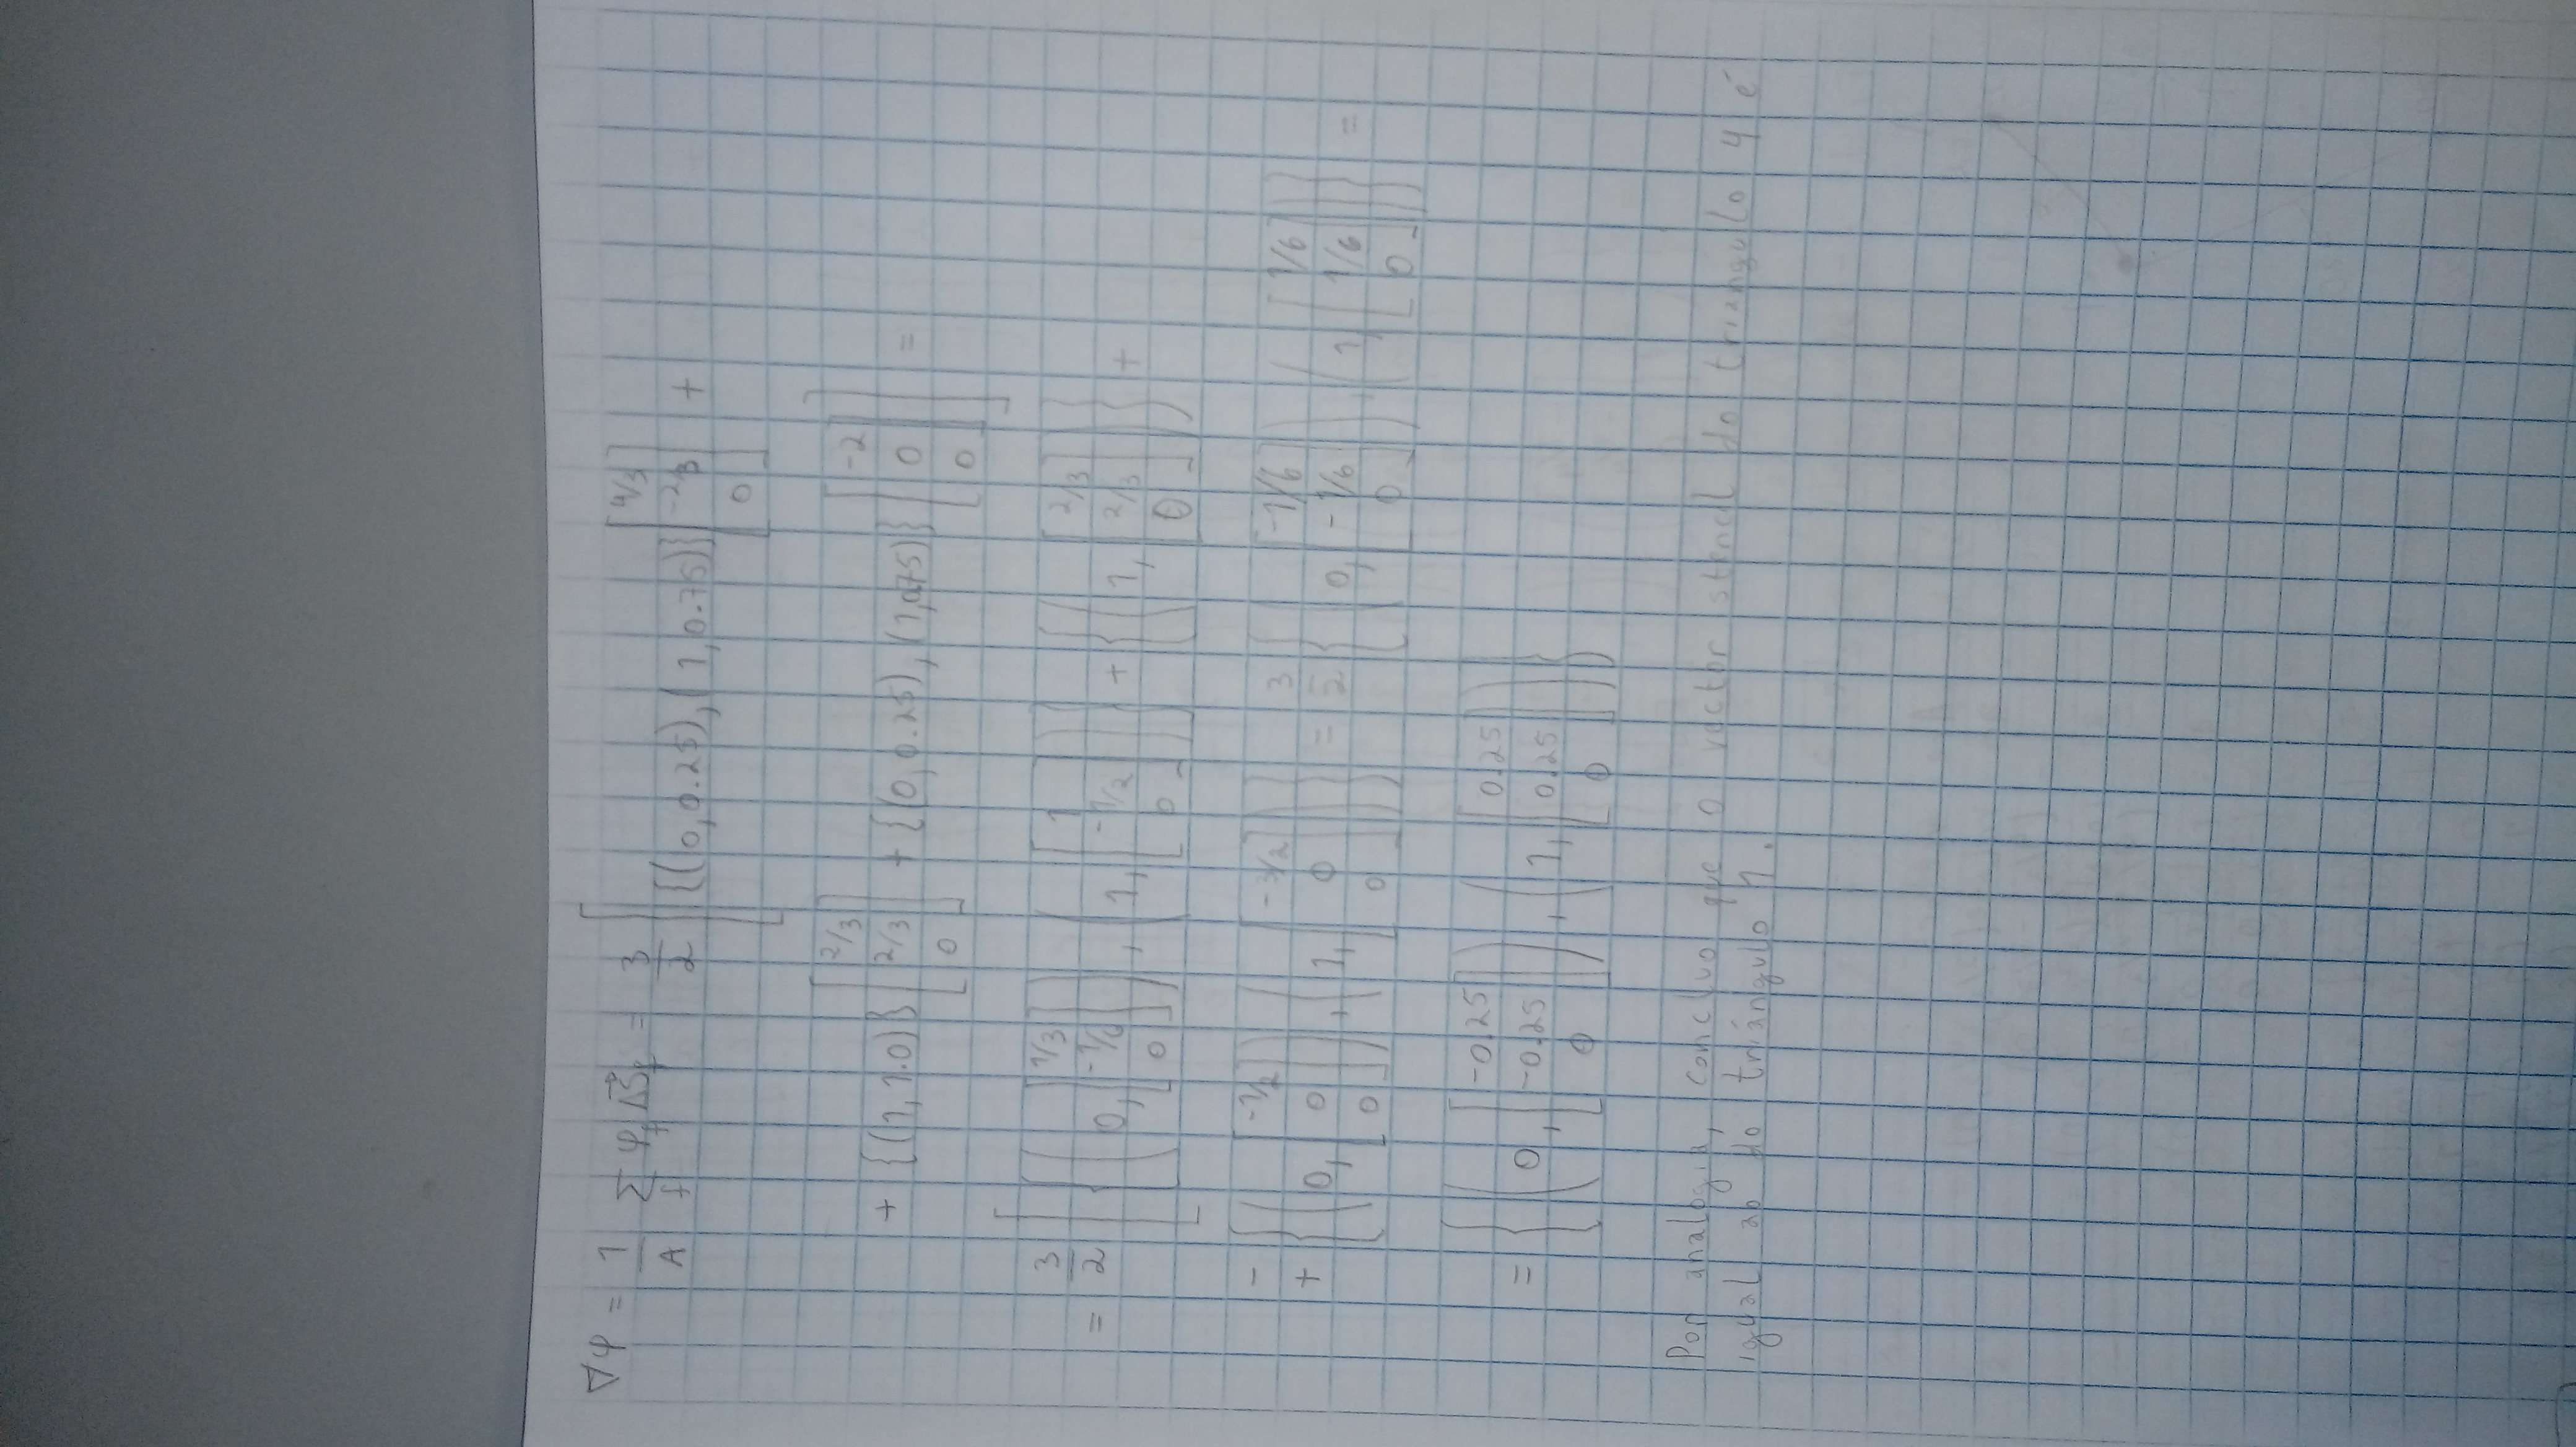 ∇φ = 1/A Σ_f φ_f ΔS⃗_f = 3/2 [ {(0, 0.25), (1, 0.75)} [4/3 -2/3 0] +
+ {(1, 1.0)} [2/3 2/3 0] + {(0, 0.25), (1, 0.75)} [-2 0 0] ] =
= 3/2 [ { (0, [1/3 -1/6 0]), (1, [1 -1/2 0]) } + { (1, [2/3 2/3 0]) } +
+ { (0, [-1/2 0 0]), (1, [-3/2 0 0]) } = 3/2 { (0, [-1/6 -1/6 0]), (1, [1/6 1/6 0]) } =
= { (0, [-0.25 -0.25 0]), (1, [0.25 0.25 0]) }
Por analogia, concluo que o vector stencil do triângulo 4 é
igual ao do triângulo 1.